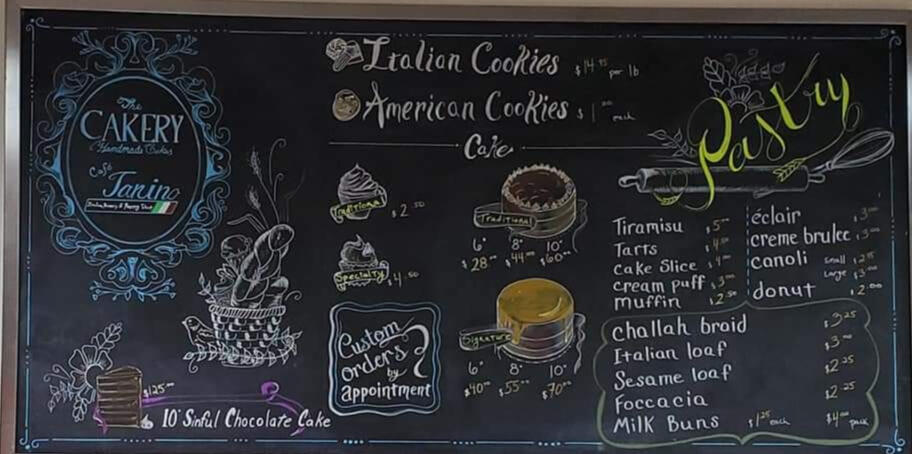 The
CAKERY
Handmade Cakes
Café
Janino
Italian Cookies $14.95 per lb
American Cookies $1.00 each
Cake
Traditional $2.50
Specialty $4.50
Traditional
6" 8" 10"
$28.00 $44.00 $60.00
Signature
6" 8" 10"
$40.00 $55.00 $70.00
Custom
orders
by
appointment
?
$125.00
10" Sinful Chocolate Cake
Pastry
Tiramisu $5.00
Tarts $4.00
Cake Slice $4.00
cream puff $3.00
muffin $2.50
éclair $3.00
creme brulee $3.00
canoli small $2.25
large $3.00
donut $2.00
challah braid $3.25
Italian loaf $3.00
Sesame loaf $2.25
Foccacia $2.25
Milk Buns $1.25 each $4.00 pack